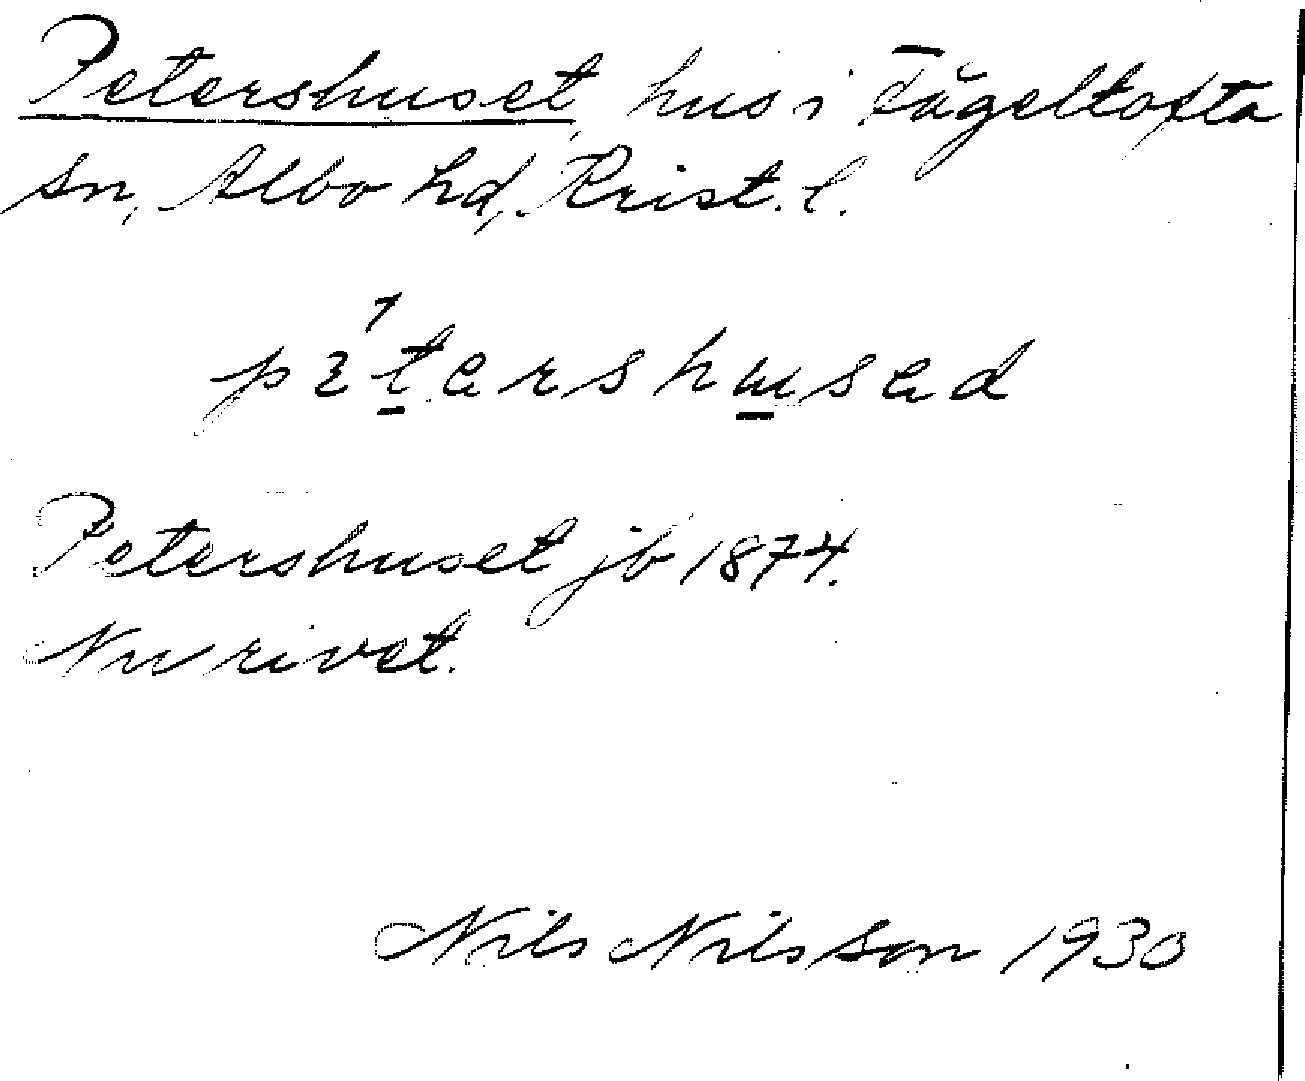 Petershuset, hus i Fågeltofta
sn, Albo hd, Krist. l.
Petershuset jb 1874.
Nu rivet.
Nils Nilsson 1930